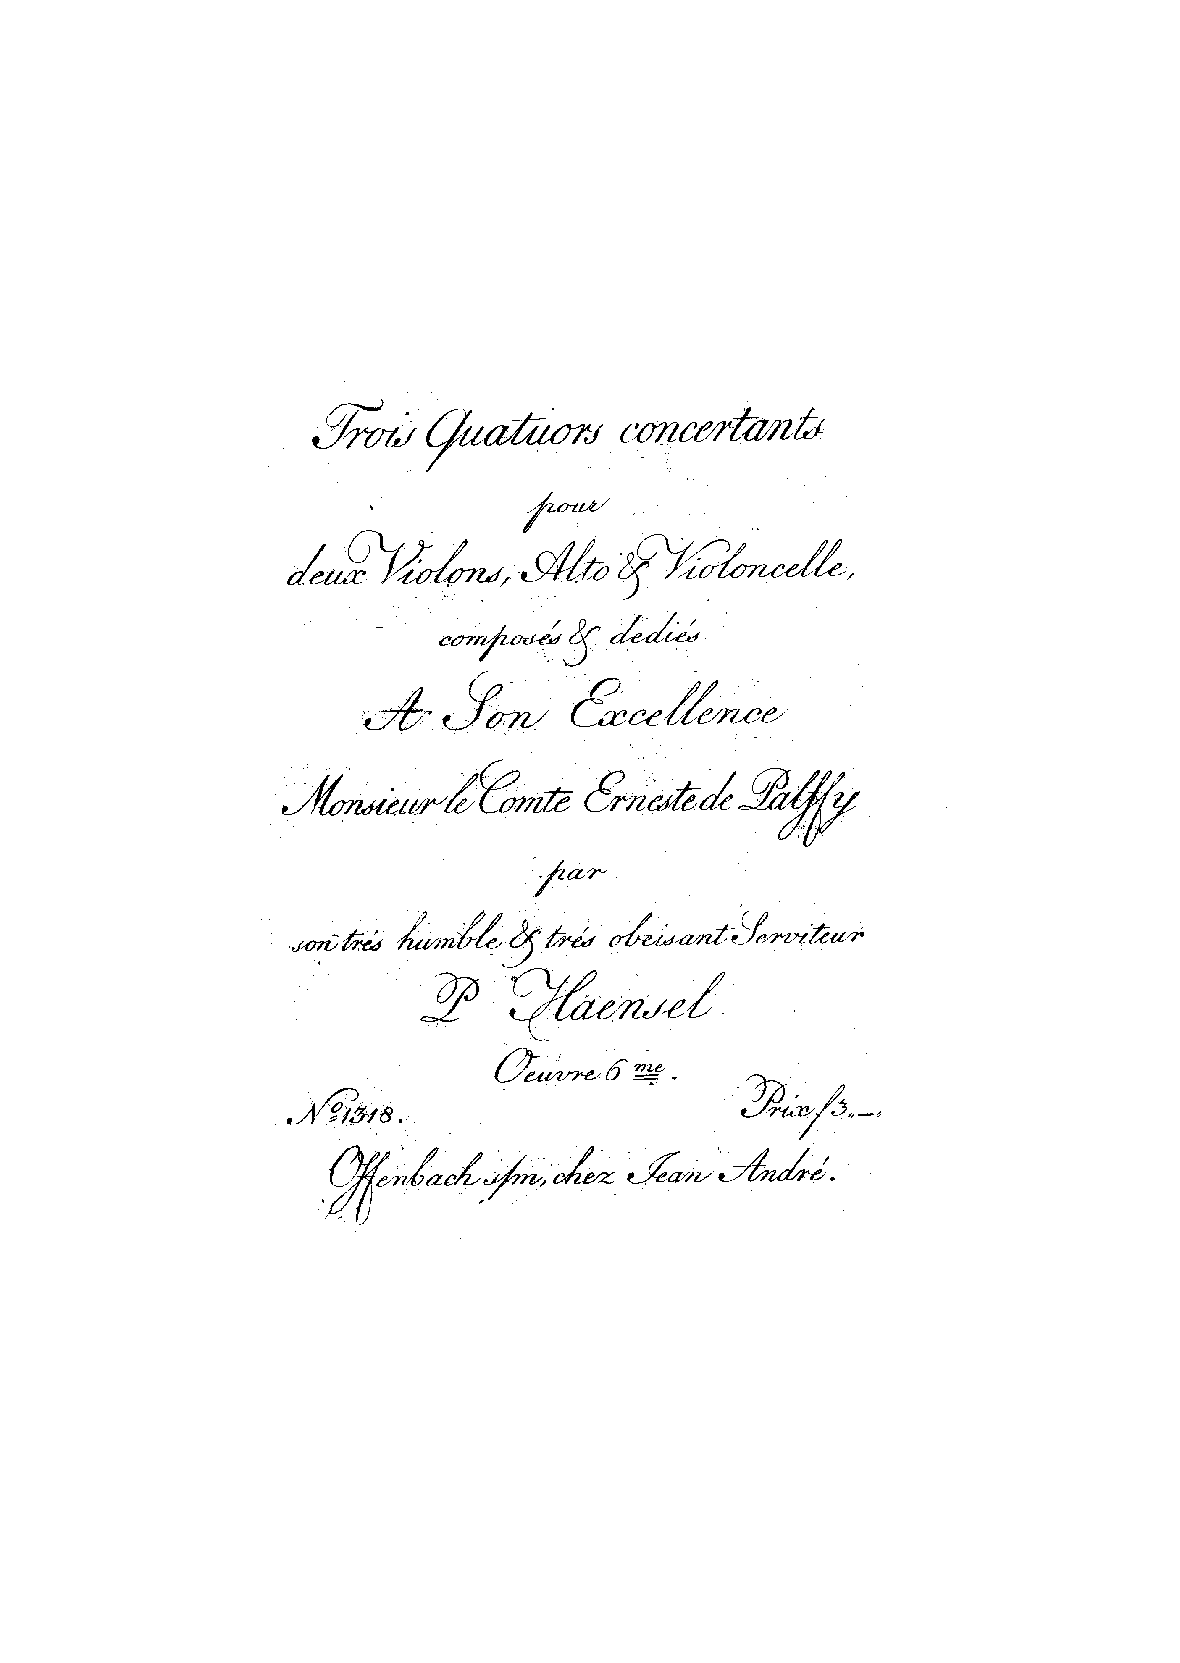 Trois Quatuors concertants
pour
deux Violons, Alto & Violoncelle,
composés & dediés
A Son Excellence
Monsieur le Comte Erneste de Palffy
par
son trés humble & trés obeisant Serviteur
P Haensel
Oeuvre 6 me.
No 1318. Prix f 3.—.
Offenbach s/m, chez Jean André.